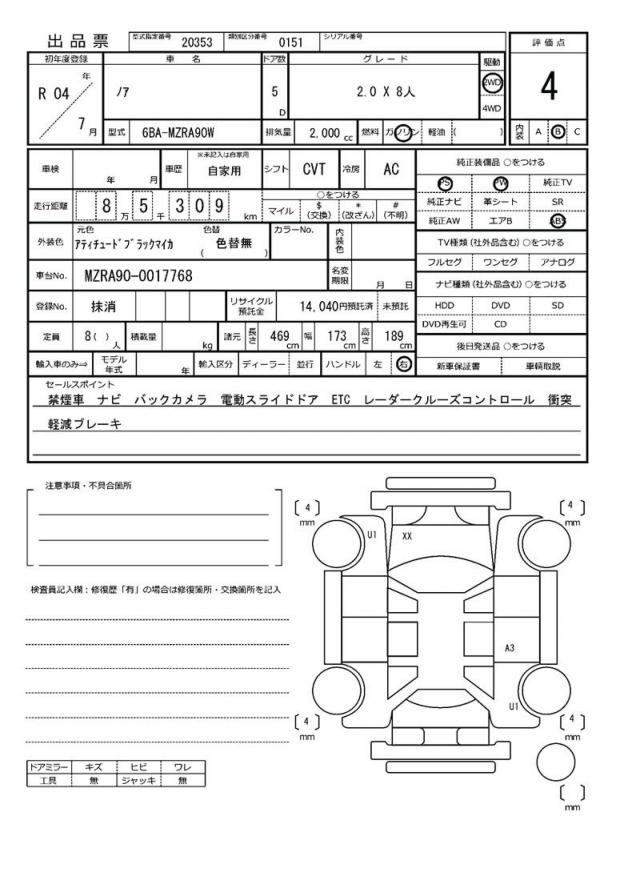 出品票 型式指定番号 20353 類別区分番号 0151 シリアル番号
初年度登録 車名 ドア数 グレード 駆動 評価点
R 04 年 7 月 ノア 5 D 2.0 X 8人 2WD 4WD 4
型式 6BA-MZRA90W 排気量 2,000 cc 燃料 ガソリン 軽油 ( ) 内装 A B C
車検 年 月 車歴 ※未記入は自家用 自家用 シフト CVT 冷房 AC 純正装備品 ○をつける
PS PW 純正TV
走行距離 8 万 5 千 3 0 9 km ○をつける
マイル $ (交換) * (改ざん) # (不明) 純正ナビ 革シート SR
純正AW エアB ABS
外装色 元色 アティチュードブラックマイカ 色替 ( 色替無 ) カラーNo. 内装色
TV種類(社外品含む)○をつける
フルセグ ワンセグ アナログ
車台No. MZRA90-0017768 名変期限 月 日
ナビ種類(社外品含む)○をつける
登録No. 抹消 リサイクル預託金 14,040円預託済 未預託
HDD DVD SD
DVD再生可 CD
定員 8( )人 積載量 kg 諸元 長さ 469 cm 幅 173 cm 高さ 189 cm
後日発送品 ○をつける
輸入車のみ⇒ モデル年式 年 輸入区分 ディーラー 並行 ハンドル 左 右 新車保証書 車輌取説
セールスポイント
禁煙車 ナビ バックカメラ 電動スライドドア ETC レーダークルーズコントロール 衝突
軽減ブレーキ
注意事項・不具合箇所
[ 4 ] mm [ 4 ] mm
U1 XX
検査員記入欄:修復歴「有」の場合は修復箇所・交換箇所を記入
A3
U1
[ 4 ] mm [ 4 ] mm
ドアミラー キズ ヒビ ワレ
工具 無 ジャッキ 無
[ ] mm